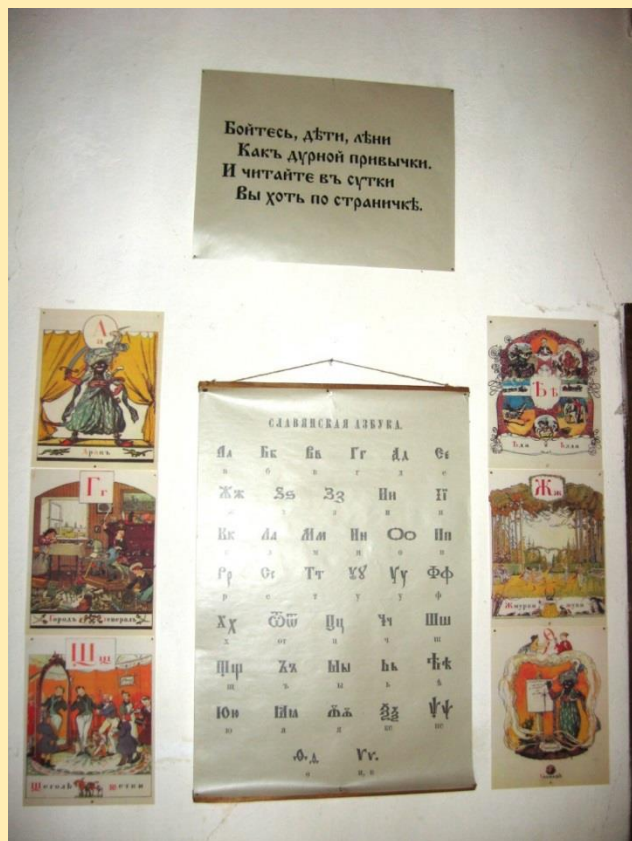 Бойтесь, дѣти, лѣни
Какъ дурной привычки.
И читайте въ сутки
Вы хоть по страничкѣ.
А
а
Арапъ
Г г
Городъ Генералъ
Щ щ
Щеголь щетки
СЛАВЯНСКАЯ АЗБУКА.
Аа Бб Вв Гг Дд Єє
а б в г д е
Жж Ѕѕ Зз Ии Її
ж з з и и
Кк Лл Мм Нн Оо Пп
к л м н о п
Рр Сс Тт Ꙋꙋ Ѵѵ Фф
р с т у у ф
Хх Ѿѿ Цц Чч Шш
х от ц ч ш
Щщ Ъъ Ыы Ьь Ѣѣ
щ ъ ы ь ѣ
Юю Ꙗꙗ Ѫѫ Ѯѯ Ѱѱ
ю я кс пс
Ѳ.ѳ. Ѵѵ.
и, в
Ѣ ѣ
Ѣда Ѣзда
Ж ж
Жмурки